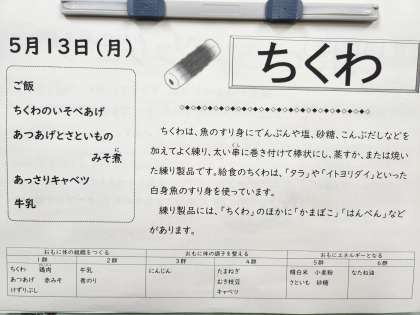 5月13日(月)
ちくわ
ご飯
ちくわのいそべあげ
あつあげとさといもの
みそ煮
に
あっさりキャベツ
牛乳
ちくわは、魚のすり身にでんぷんや塩、砂糖、こんぶだしなどを
加えてよく練り、太い串に巻き付けて棒状にし、蒸すか、または焼い
くし
た練り製品です。給食のちくわは、「タラ」や「イトヨリダイ」といった
白身魚のすり身を使っています。
練り製品には、「ちくわ」のほかに「かまぼこ」「はんぺん」などが
あります。
おもに体の組織をつくる
おもに体の調子を整える
おもにエネルギーとなる
1群 2群 3群 4群 5群 6群
ちくわ 鶏肉 牛乳 にんじん たまねぎ 精白米 小麦粉 なたね油
あつあげ 赤みそ 青のり むき枝豆 さといも 砂糖
けずりぶし キャベツ